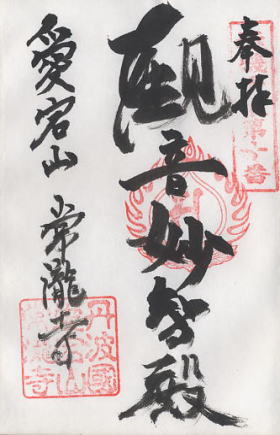 奉拝
第十番
觀音妙智殿
愛宕山 常瀧寺
丹波國
愛宕山
常瀧寺